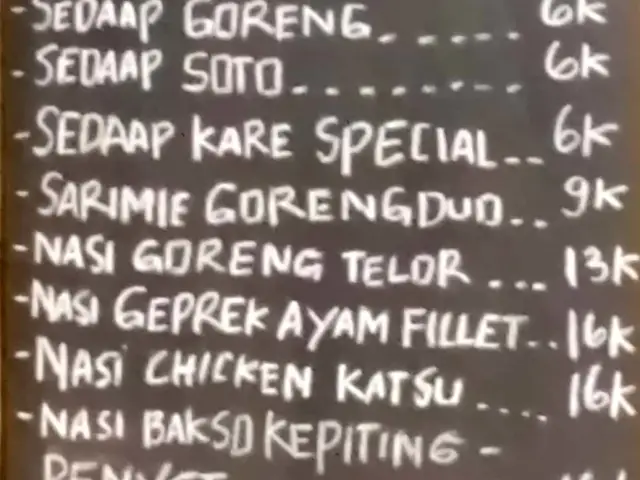 - SEDAAP GORENG...... 6K
- SEDAAP SOTO......... 6K
- SEDAAP KARE SPECIAL... 6K
- SARIMIE GORENG DUO... 9K
- NASI GORENG TELOR .... 13K
- NASI GEPREK AYAM FILLET.. 16K
- NASI CHICKEN KATSU .... 16K
- NASI BAKSO KEPITING -
PENYET